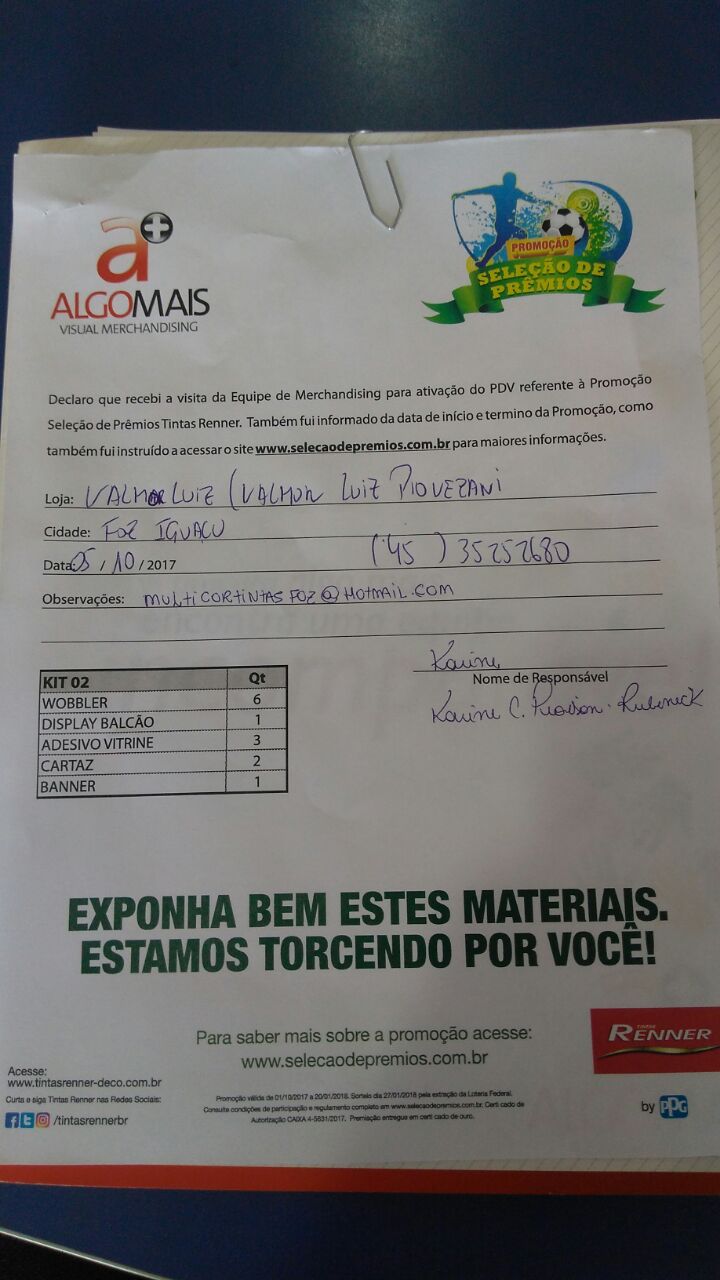 a+
ALGOMAIS
VISUAL MERCHANDISING
PROMOÇÃO
SELEÇÃO DE
PRÊMIOS
Declaro que recebi a visita da Equipe de Merchandising para ativação do PDV referente à Promoção
Seleção de Prêmios Tintas Renner. Também fui informado da data de início e termino da Promoção, como
também fui instruído a acessar o site www.selecaodepremios.com.br para maiores informações.
Loja: VALMOR LUIZ (VALMOR LUIZ PIOVEZANI
Cidade: FOZ IGUAÇU
Data: 05 / 10 / 2017 (45) 35252680
Observações: multicortintasfoz@hotmail.com
Karine
Nome de Responsável
Karine C.
KIT 02 Qt
WOBBLER 6
DISPLAY BALCÃO 1
ADESIVO VITRINE 3
CARTAZ 2
BANNER 1
EXPONHA BEM ESTES MATERIAIS.
ESTAMOS TORCENDO POR VOCÊ!
Para saber mais sobre a promoção acesse:
www.selecaodepremios.com.br
TINTAS
RENNER
by PPG
Acesse:
www.tintasrenner-deco.com.br
Curta e siga Tintas Renner nas Redes Sociais:
/tintasrennerbr
Promoção válida de 01/10/2017 a 20/01/2018. Sorteio dia 27/01/2018 pela extração da Loteria Federal.
Consulte condições de participação e regulamento completo em www.selecaodepremios.com.br. Certi cado de
Autorização CAIXA 4-5831/2017. Premiação entregue em certi cado de ouro.